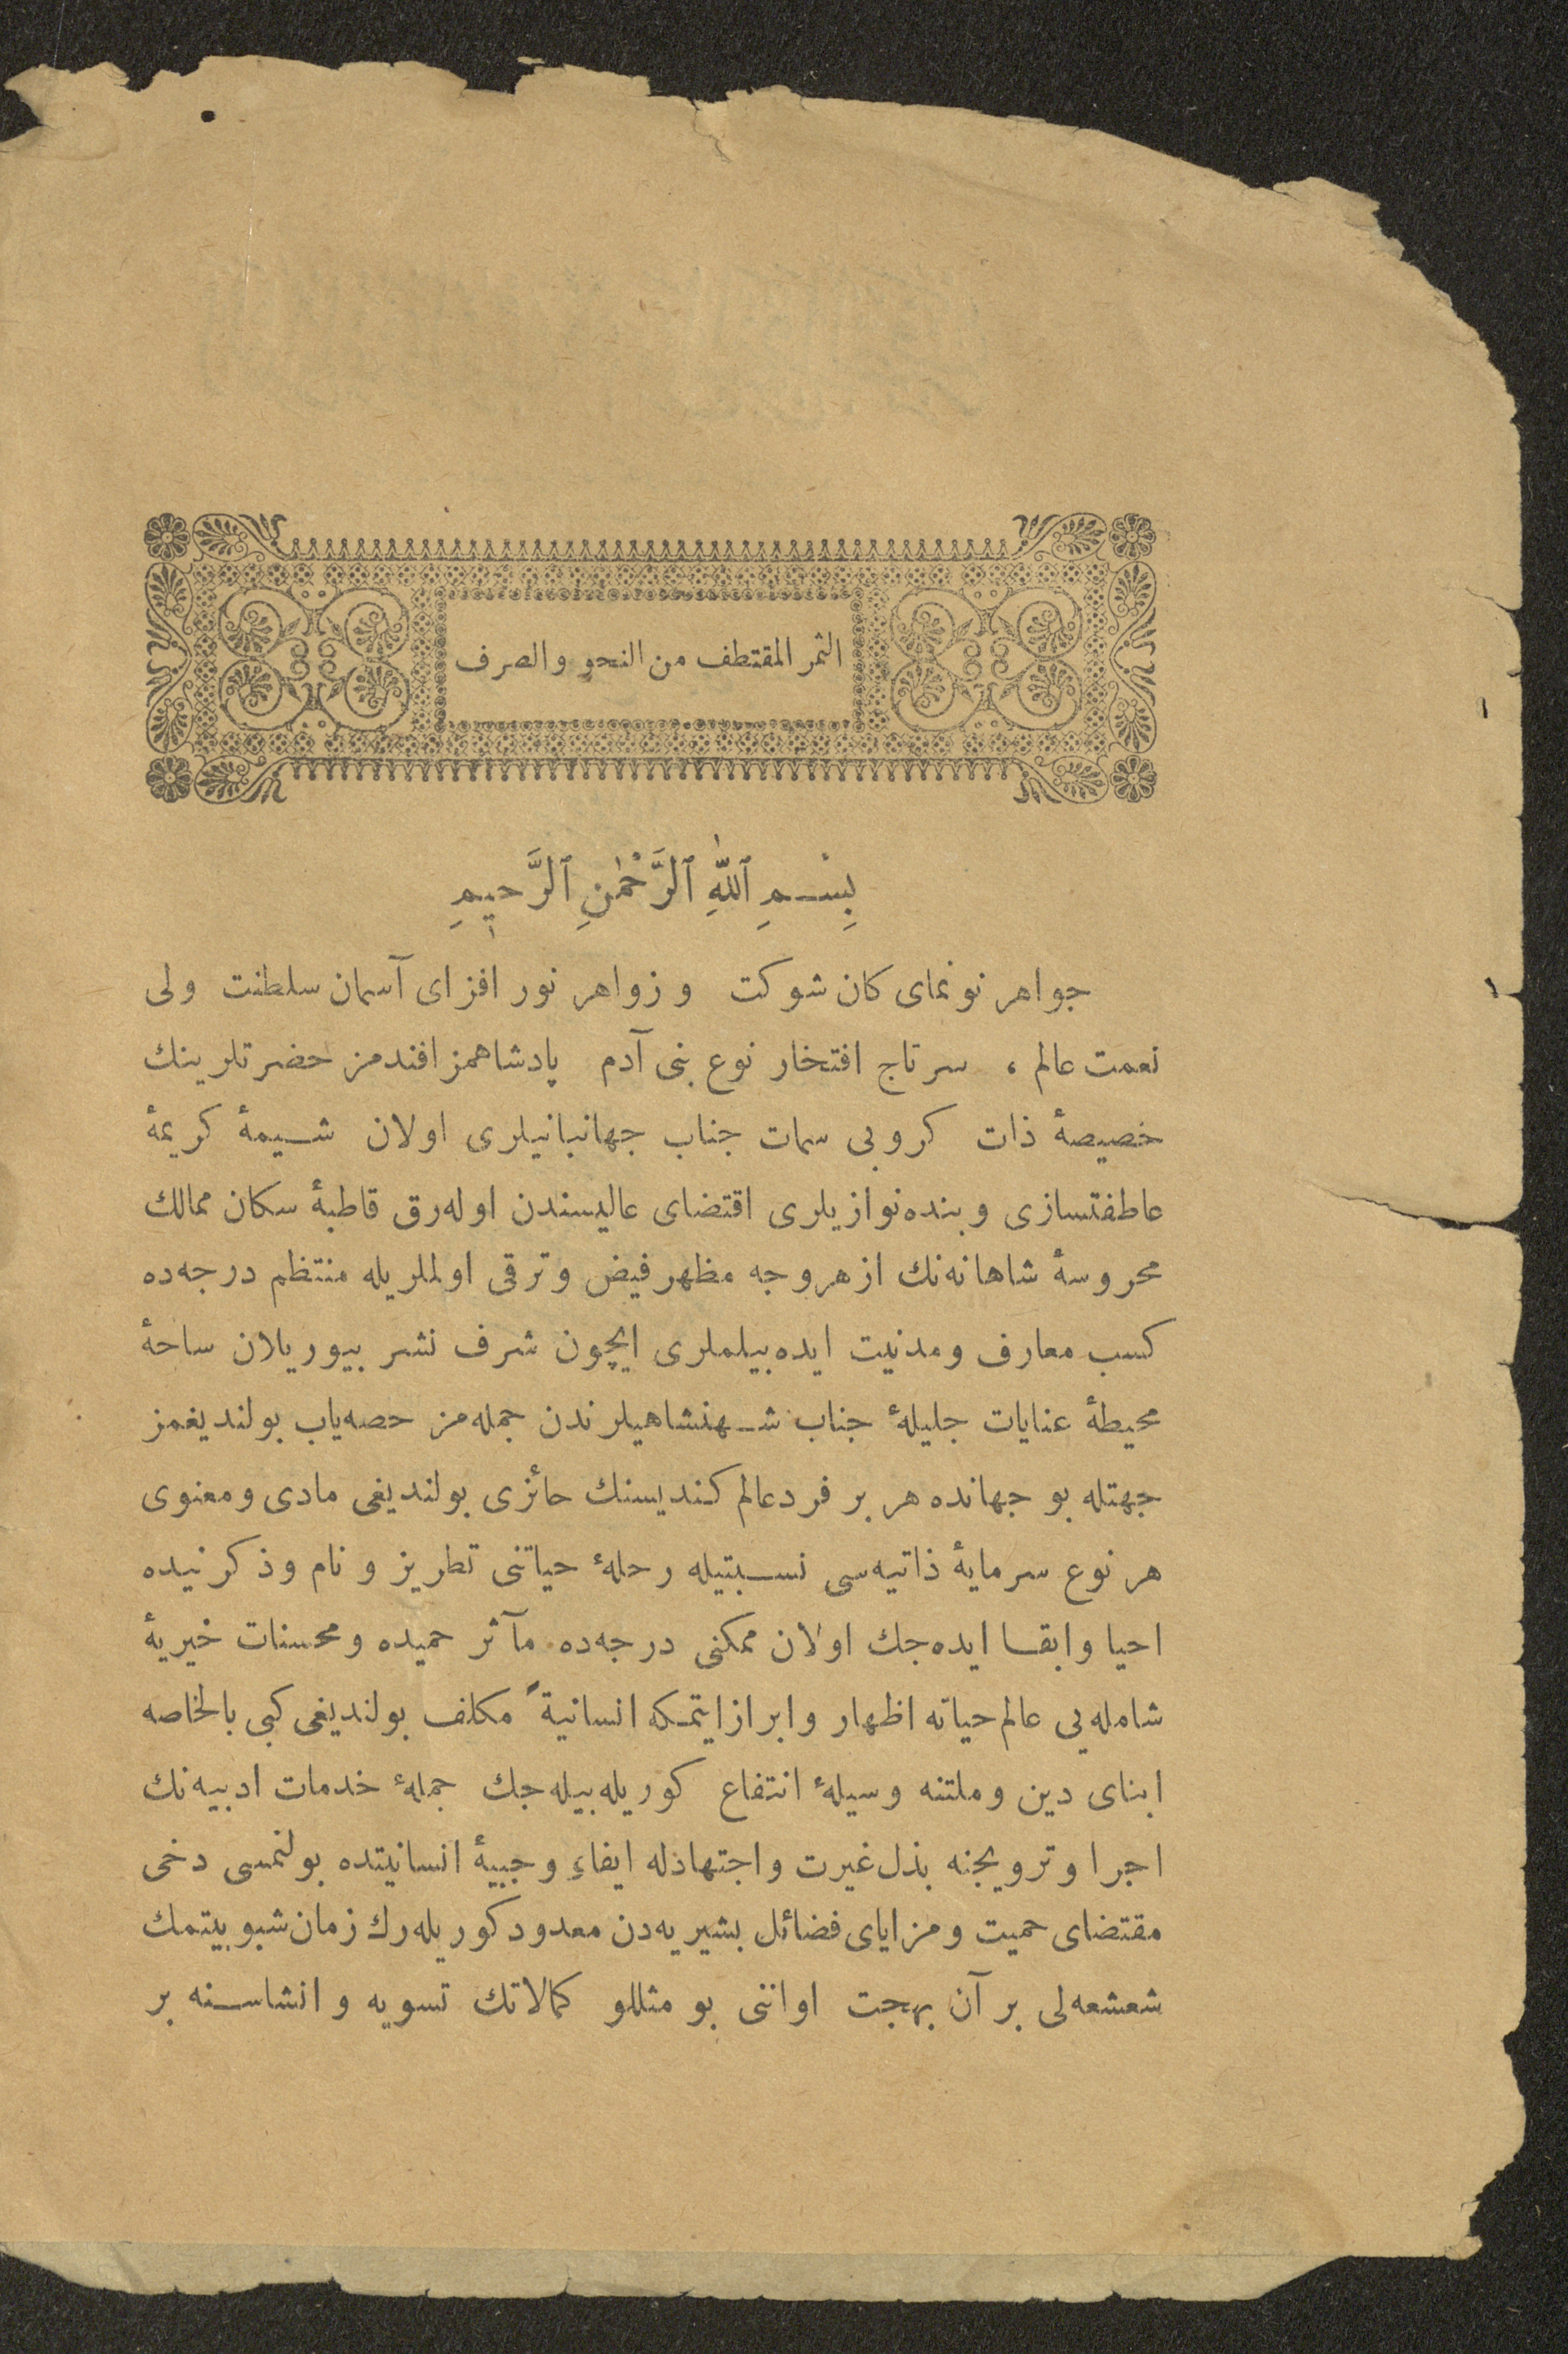 الثمر المقتطف من النحو والصرف
بِسْمِ ٱللّٰهِ ٱلرَّحْمٰنِ ٱلرَّحِيمِ
جواهر نونمای كان شوكت و زواهر نور افزای آسمان سلطنت ولی
نعمت عالم ، سرتاج افتخار نوع بنی آدم پادشاهمز افندمز حضرتلرینك
خصیصهٔ ذات كروبی سمات جناب جهانبانیلری اولان شیمهٔ كریمهٔ
عاطفتسازی وبنده‌نوازیلری اقتضای عالیسندن اوله‌رق قاطبهٔ سكان ممالك
محروسهٔ شاهانه‌نك ازهروجه مظهر فیض وترقی اولملریله منتظم درجه‌ده
كسب معارف ومدنیت ایده‌بیلملری ایچون شرف نشر بیوریلان ساحهٔ
محیطهٔ عنایات جلیلهٔ جناب شهنشاهیلرندن جمله‌مز حصه‌یاب بولندیغمز
جهتله بو جهانده هر بر فرد عالم كندیسنك حائزی بولندیغی مادی ومعنوی
هر نوع سرمایهٔ ذاتیه‌سی نسبتیله رحلهٔ حیاتنی تطریز و نام وذكرنیده
احیا وابقا ایده‌جك اولان ممكنی درجه‌ده مآثر حمیده ومحسنات خیریهٔ
شامله‌یی عالم حیاته اظهار وابراز ایتمكه انسانیةً مكلف بولندیغی كبی بالخاصه
ابنای دین وملتنه وسیلهٔ انتفاع كوریله‌بیله‌جك جملهٔ خدمات ادبیه‌نك
اجرا وترویجنه بذل غیرت واجتهادله ایفاء وجیبهٔ انسانیتده بولنمسی دخی
مقتضای حمیت ومزایای فضائل بشیریه‌دن معدود كوریله‌رك زمان شبوبیتمك
شعشعه‌لی بر آن بهجت اواننی بو مثللو كمالاتك تسویه و انشاسنه بر